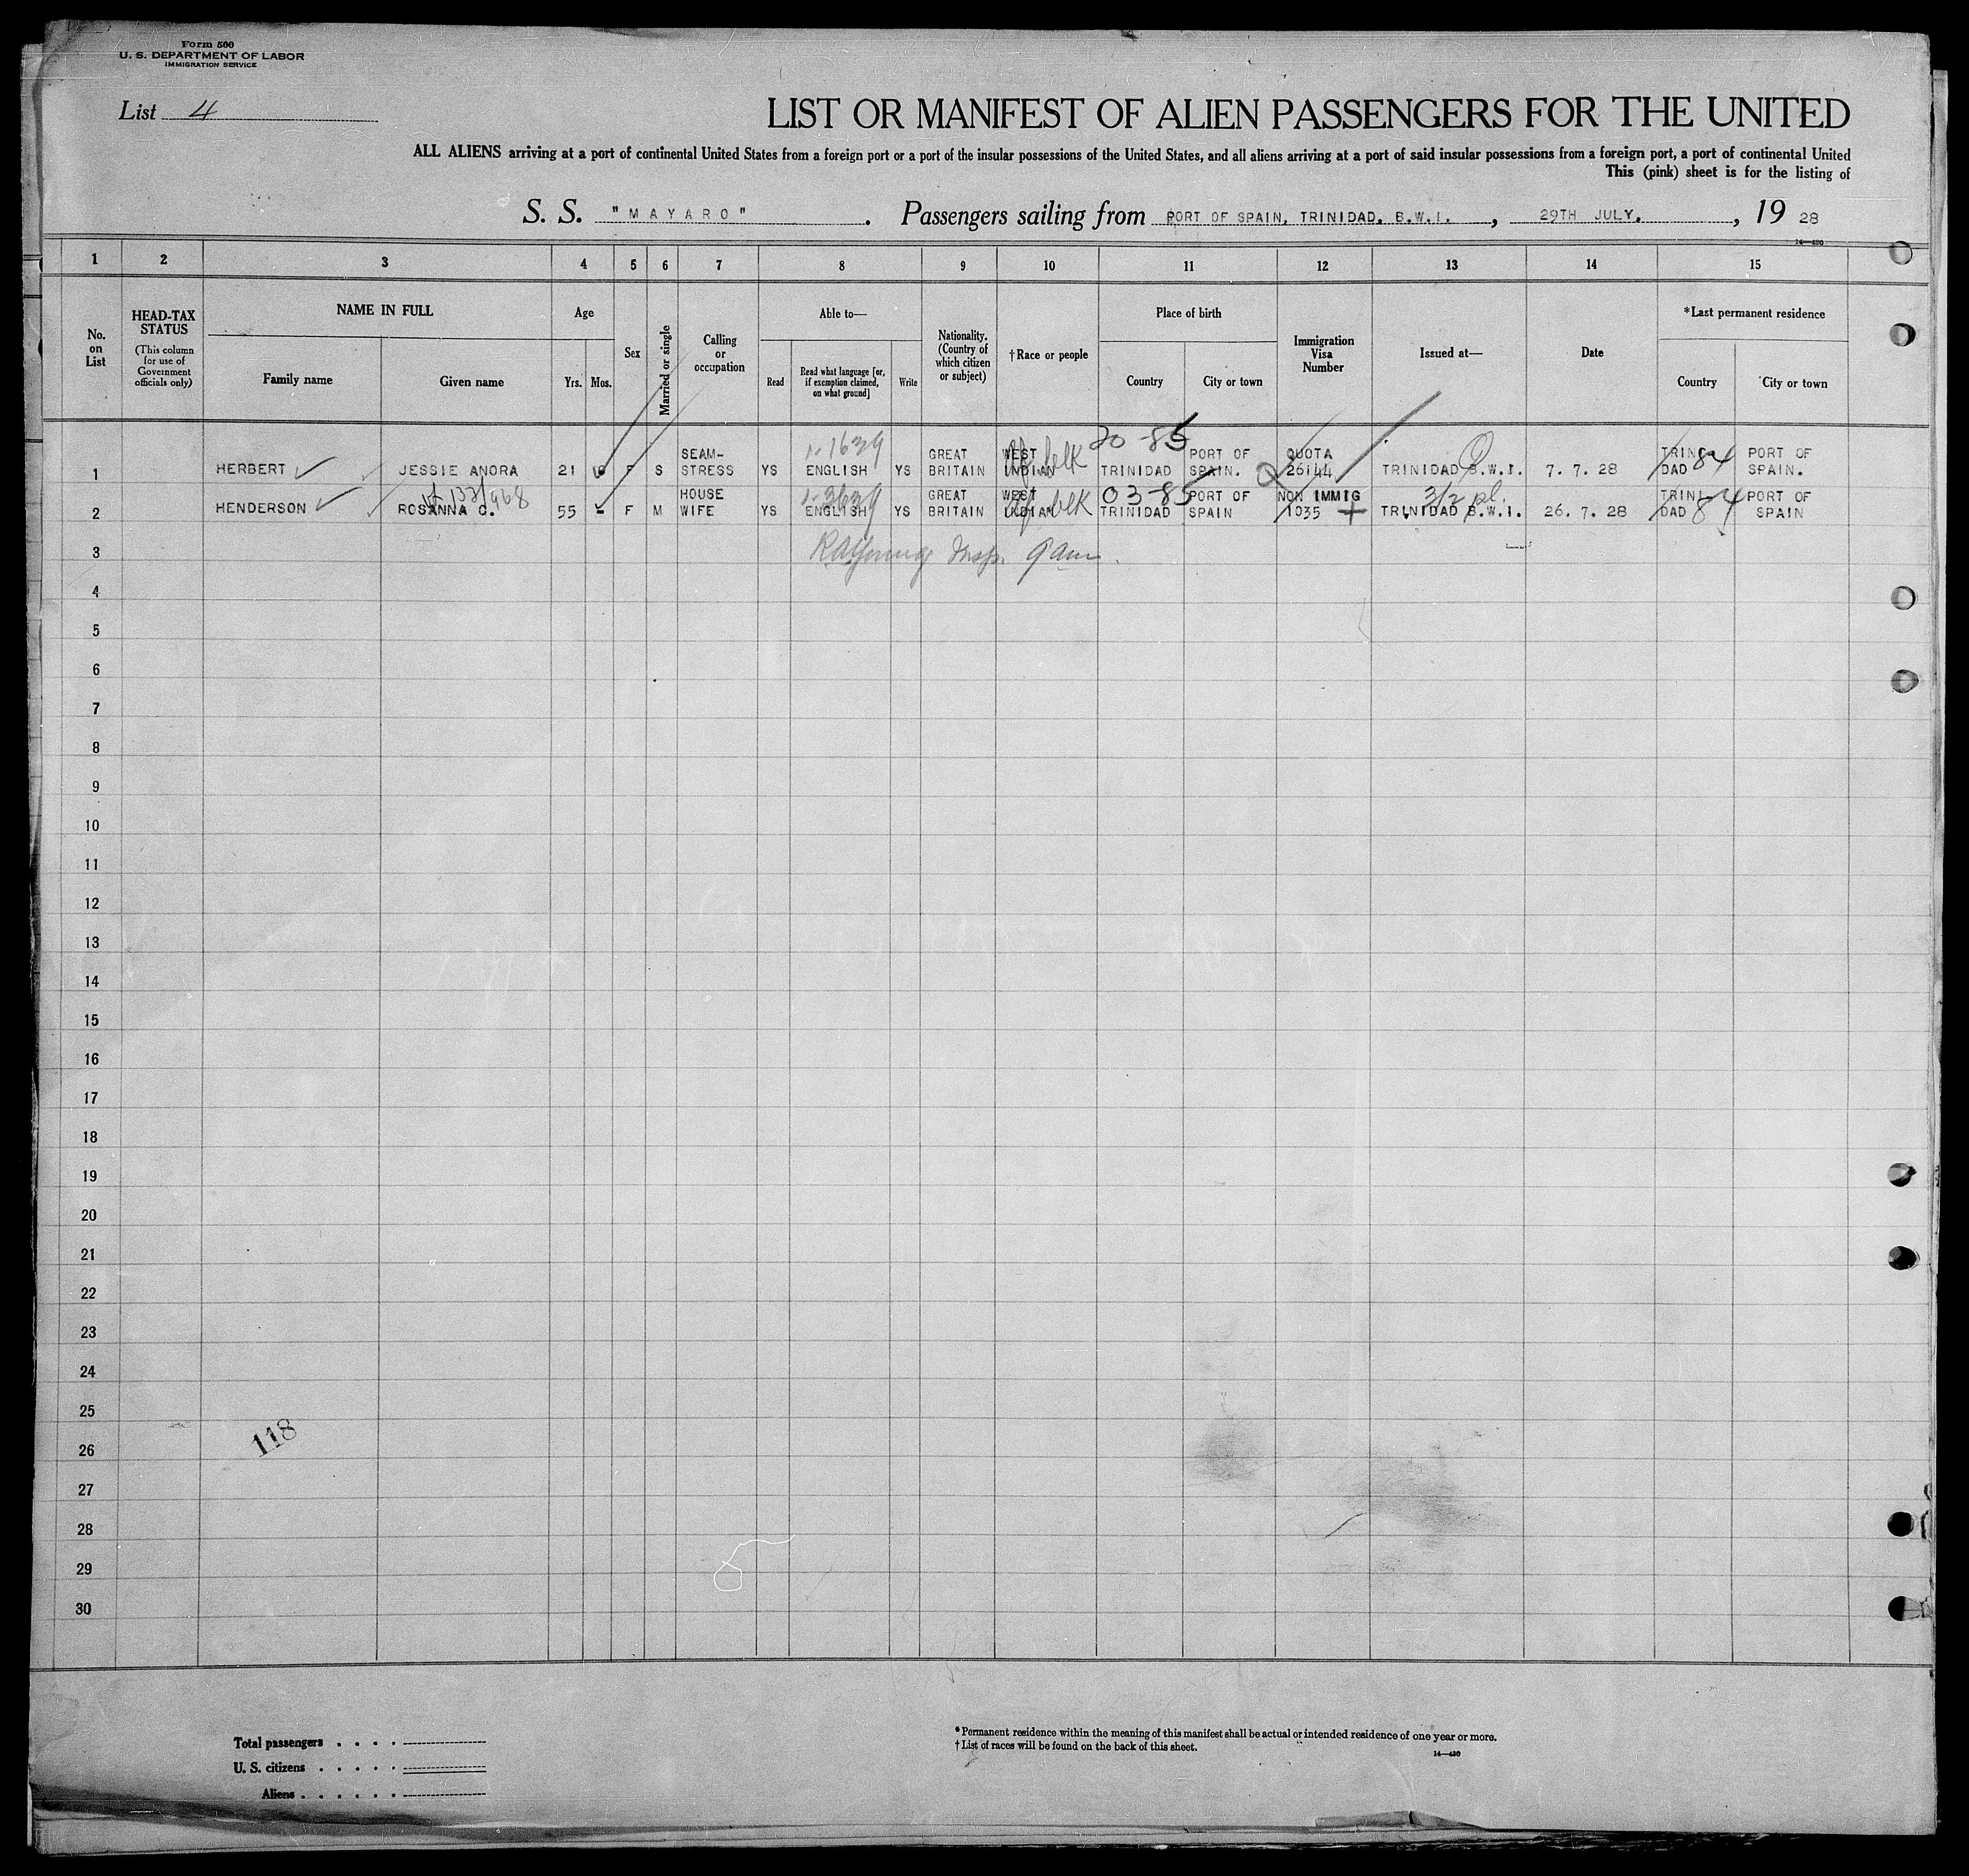 Form 500
U. S. DEPARTMENT OF LABOR
IMMIGRATION SERVICE
List 4
LIST OR MANIFEST OF ALIEN PASSENGERS FOR THE UNITED
ALL ALIENS arriving at a port of continental United States from a foreign port or a port of the insular possessions of the United States, and all aliens arriving at a port of said insular possessions from a foreign port, a port of continental United
This (pink) sheet is for the listing of
S. S. "MAYARO". Passengers sailing from PORT OF SPAIN, TRINIDAD. B.W.I., 29TH JULY., 19 28
14—430
1 2 3 4 5 6 7 8 9 10 11 12 13 14 15
No. on List
HEAD-TAX STATUS
(This column for use of Government officials only)
NAME IN FULL
Family name
Given name
Age
Yrs.
Mos.
Sex
Married or single
Calling or occupation
Able to—
Read
Read what language [or, if exemption claimed, on what ground]
Write
Nationality. (Country of which citizen or subject)
†Race or people
Place of birth
Country
City or town
Immigration Visa Number
Issued at—
Date
*Last permanent residence
Country
City or town
20-85
1-1639
SEAM- GREAT WEST PORT OF QUOTA TRINI- PORT OF
1 HERBERT JESSIE ANORA 21 F S STRESS YS ENGLISH YS BRITAIN INDIAN blk TRINIDAD SPAIN. 26144 TRINIDAD B.W.I. 7. 7. 28 DAD 84 SPAIN.
HOUSE 1-3639 GREAT WEST 03-85 PORT OF NON IMMIG 3/2 pl. TRINI- PORT OF
2 HENDERSON ROSANNA C. 55 - F M WIFE YS ENGLISH YS BRITAIN INDIAN blk TRINIDAD SPAIN 1035 TRINIDAD B.W.I. 26. 7. 28 DAD 84 SPAIN
3 Insp. 9 am
4
5
6
7
8
9
10
11
12
13
14
15
16
17
18
19
20
21
22
23
24
25
118
26
27
28
29
30
Total passengers . . . .
U. S. citizens . . . . .
Aliens . . . . . .
*Permanent residence within the meaning of this manifest shall be actual or intended residence of one year or more.
†List of races will be found on the back of this sheet.
14—430